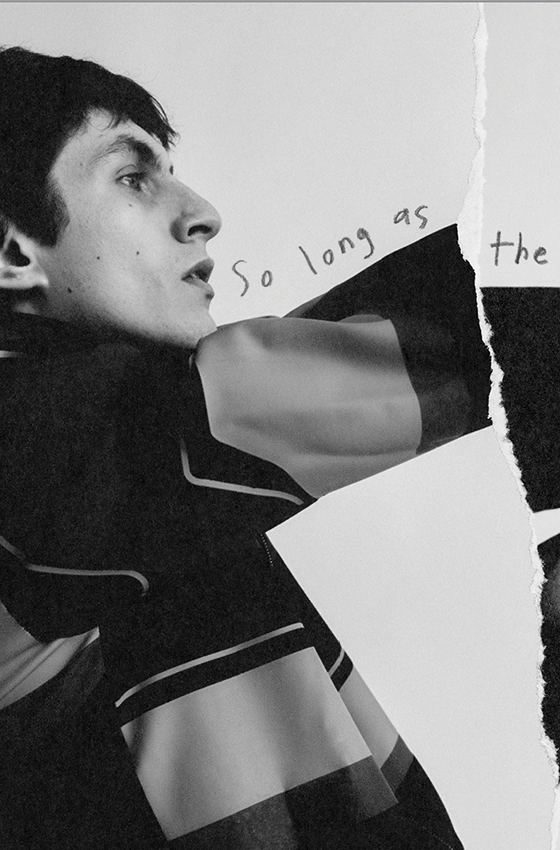 So long as the